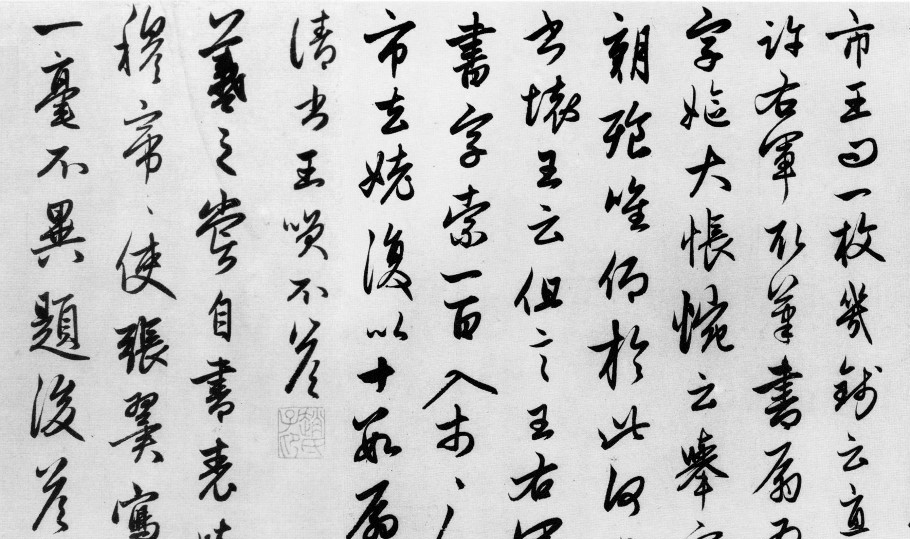 市王曰一枚幾錢云直
許右軍取筆書扇為
字媼大悵惋云舉家
朝飱唯仰於此何
書壞王云但言王右軍
書字索一百入市
市去姥復以十數扇
請書王笑不答
羲之嘗自書表
穆帝帝使張翼寫
一毫不異題後答